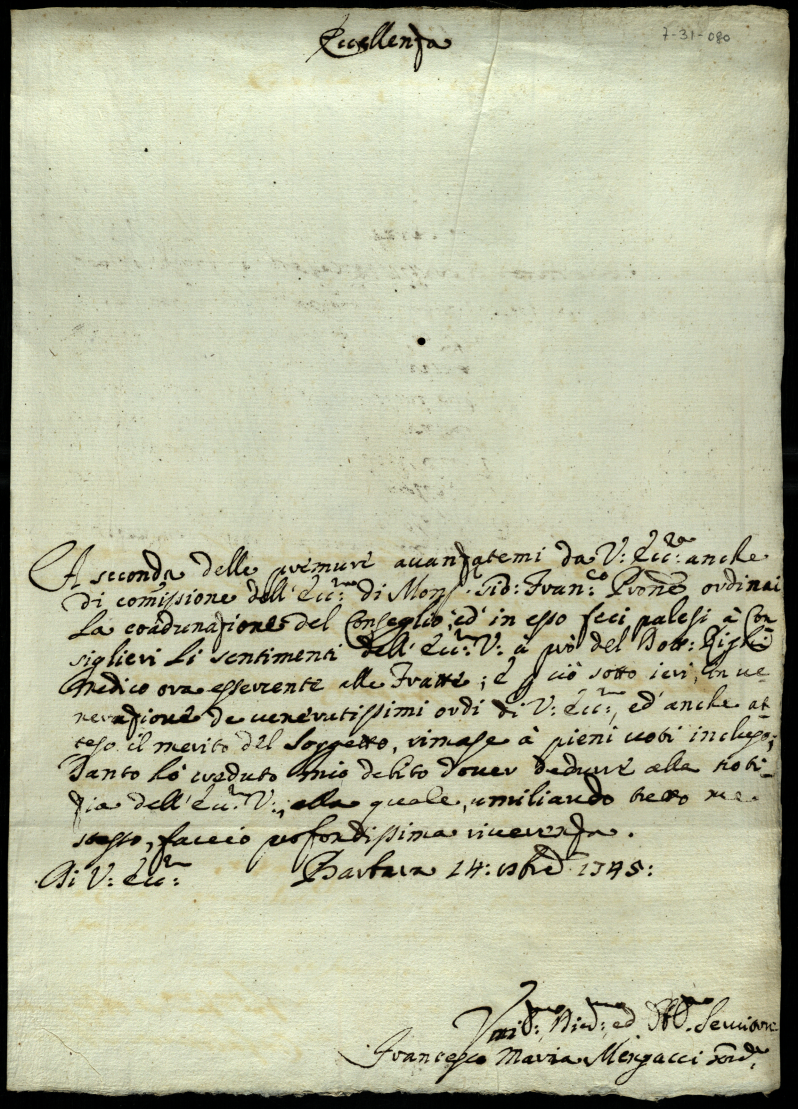 Eccellenza
7-31-080
A seconda delle premure avanzatemi da V: Ecc:za anche
di comissione dell'Ecc:za di Mons: Sid: Fran:co Prone ordinai
la coadunazione del Conseglio, ed' in esso feci palesi à Con
siglieri li sentimenti dell'Ecc:za V: à prò del Dott: Righi
Medico ora esserente alle Fratte; e p ciò sotto ieri, in ve
nerazione de veneratissimi ordi di V: Ecc:za, ed' anche at
teso il merito del Soggetto, rimase à pieni voti incluso;
Tanto hò creduto mio debito dover dedurre alla noti
zia dell'Ecc:za V:, alla quale, umiliando tutto me
stesso, faccio profondissima riverenza.
Di V: Ecc:za Barbara 14: 1745:
Umil:mo Div:mo ed Obb:mo Servitore
Francesco Maria Mengacci